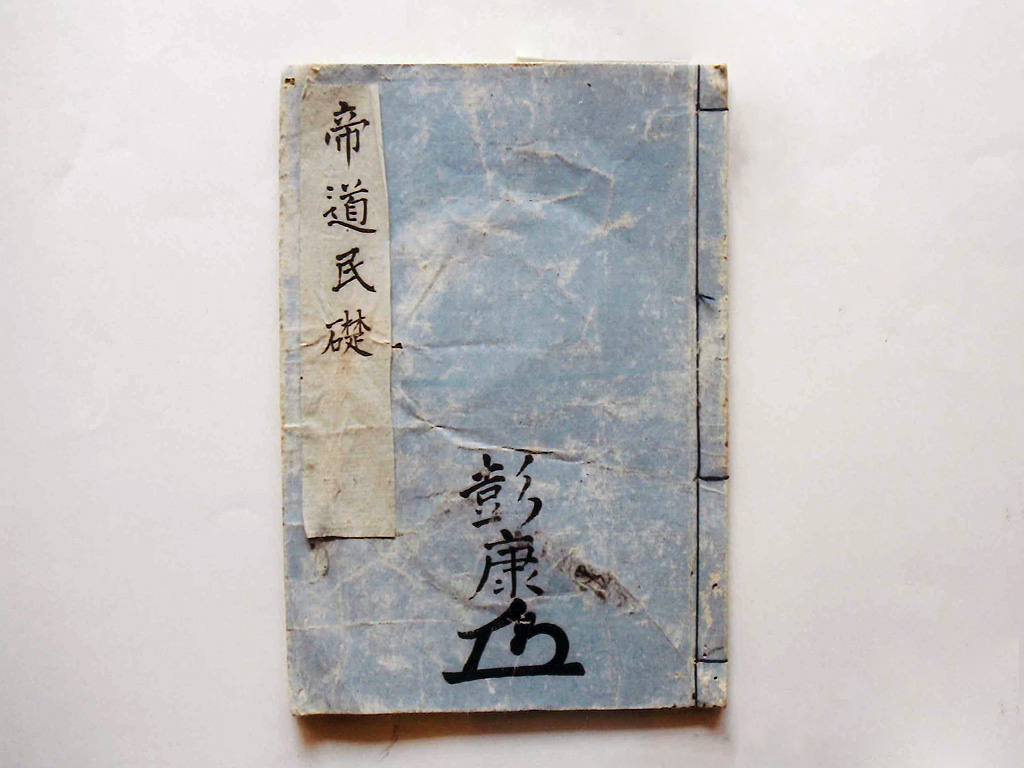 帝道民礎
彭康